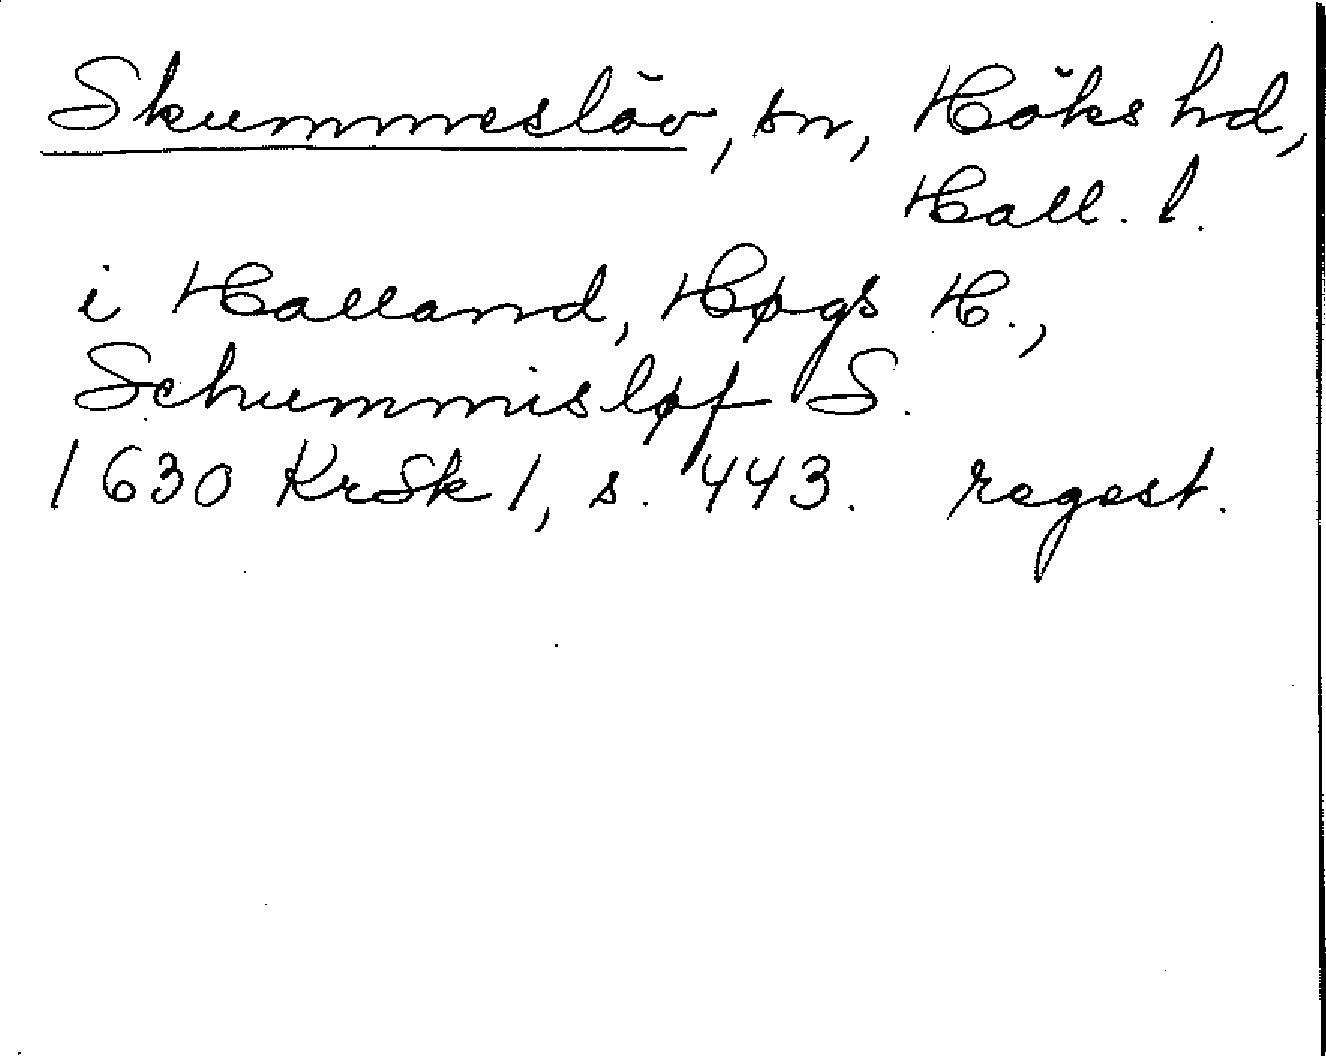 Skummeslöv, sn, Höks hd,
Hall. l.
i Halland, Høgs H.,
Schummisløf S.
1630 KrSk 1, s. 443. regest.